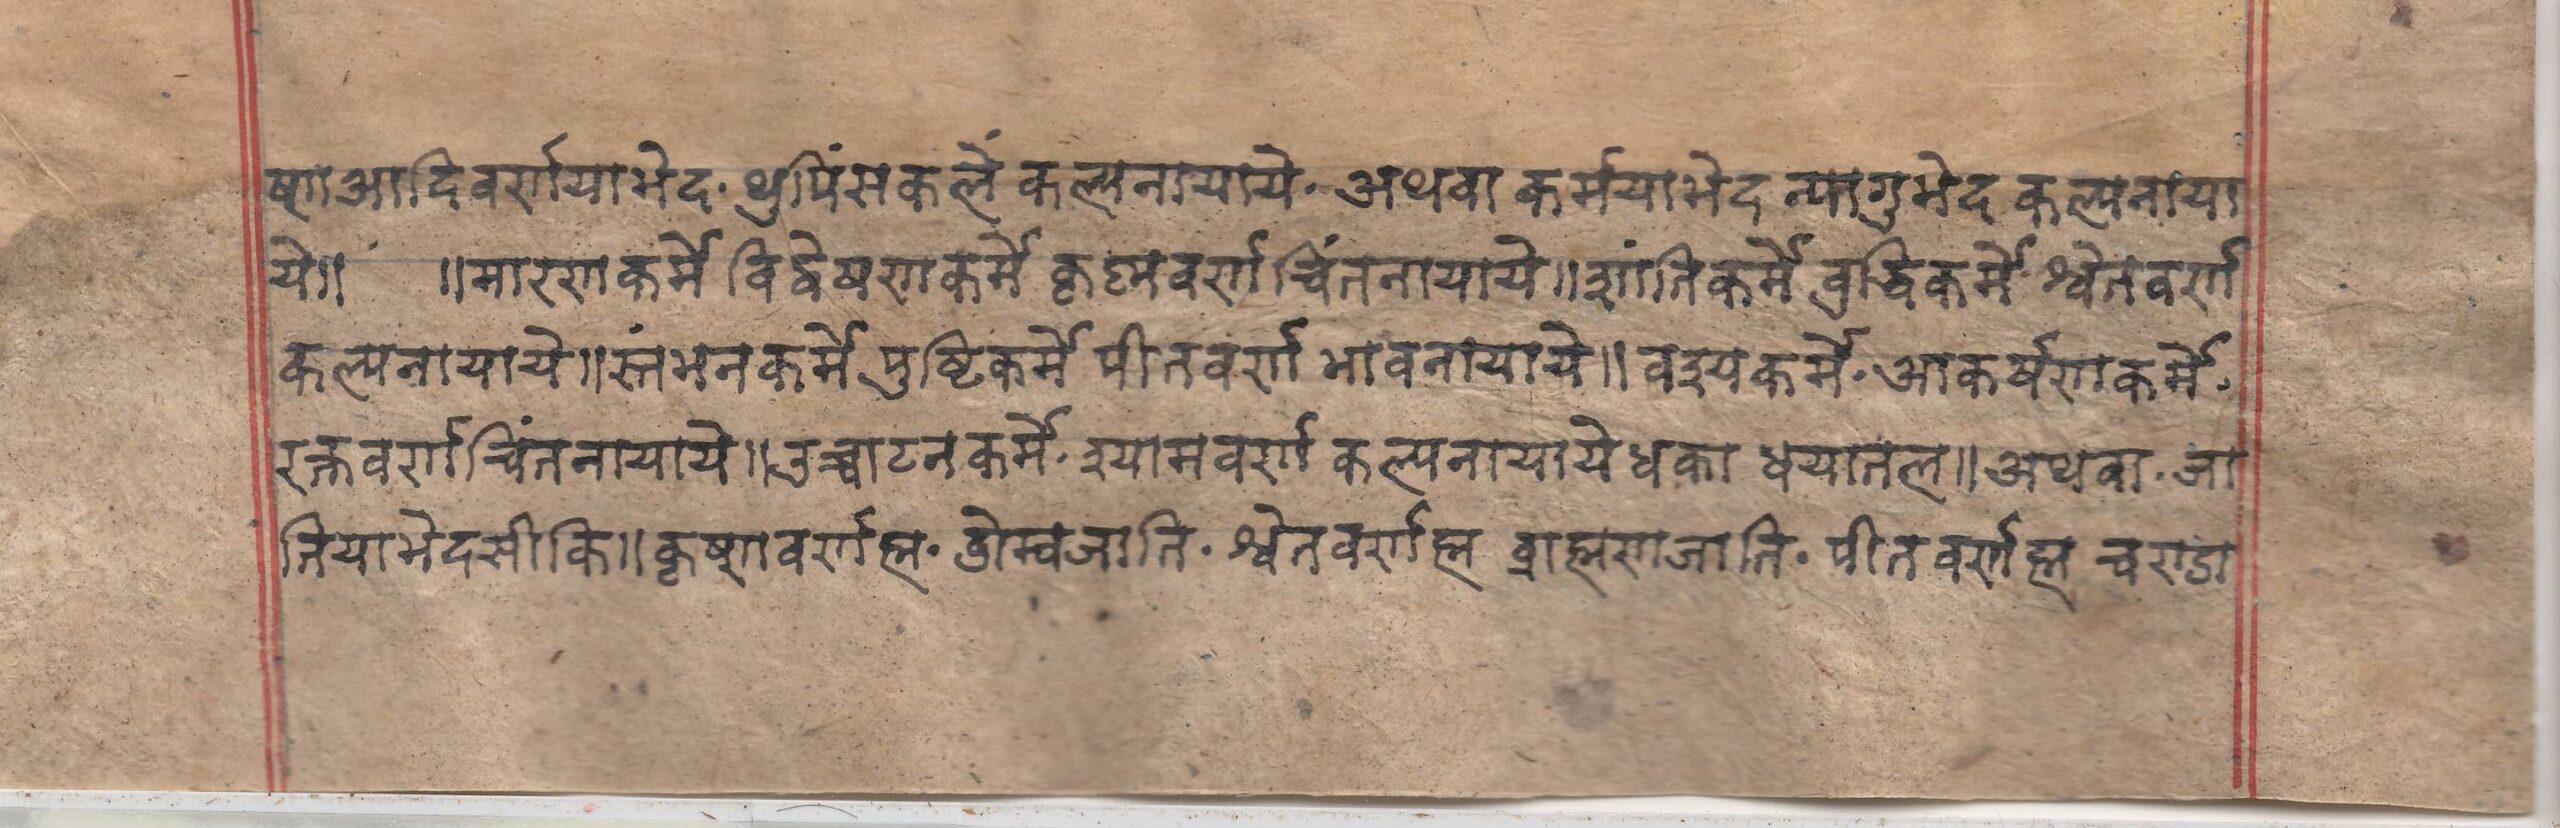 ष्ण आदिवर्णया भेद· थुपिंसकलें कल्पनायाये· अथवा कर्मयाभेद न्यागुभेद कल्पनाया
ये॥ ॥मारणकर्मे विद्वेषणकर्मे कृष्णवर्ण चिंतनायाये॥शांतिकर्मे वृद्धिकर्मे श्वेतवर्ण
कल्पनायाये॥स्तंभनकर्मे पुष्टिकर्मे पीतवर्ण भावनायाये॥ वश्यकर्मे· आकर्षणकर्मे·
रक्तवर्ण चिंतनायाये॥उच्चाटनकर्मे· श्यामवर्ण कल्पनायाये धका धयातल॥अथवा· जा
तियाभेदसीकि॥कृष्णवर्णह्म· डोम्वजाति· श्वेतवर्णह्म ब्राह्मणजाति· पीतवर्णह्म चण्डा